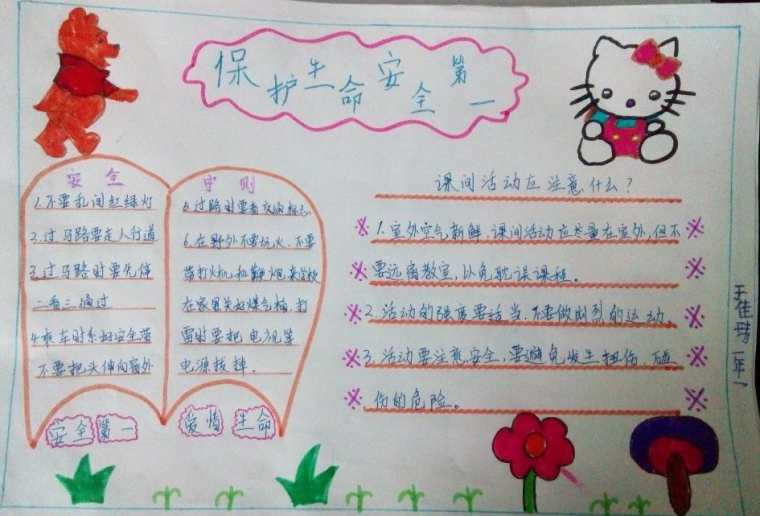 保护生命安全第一
安全守则
1.不要乱闯红绿灯
2.过马路要走人行道
3.过马路时要先停
二看三通过
4.乘车时系好安全带
不要把头伸向窗外
5.过路时要看交通标志
6.在野外不要玩火,不要
带打火机和鞭炮来学校
在家里关好煤气桶,打
雷时要把电视等
电源拔掉。
安全第一
爱惜生命
课间活动应注意什么?
1.室外空气新鲜,课间活动应尽量在室外,但不
要远离教室,以免耽误课程。
2.活动的强度要适当,不要做剧烈的运动。
3.活动要注意安全,要避免发生扭伤、碰
伤的危险。
王佳 一年一